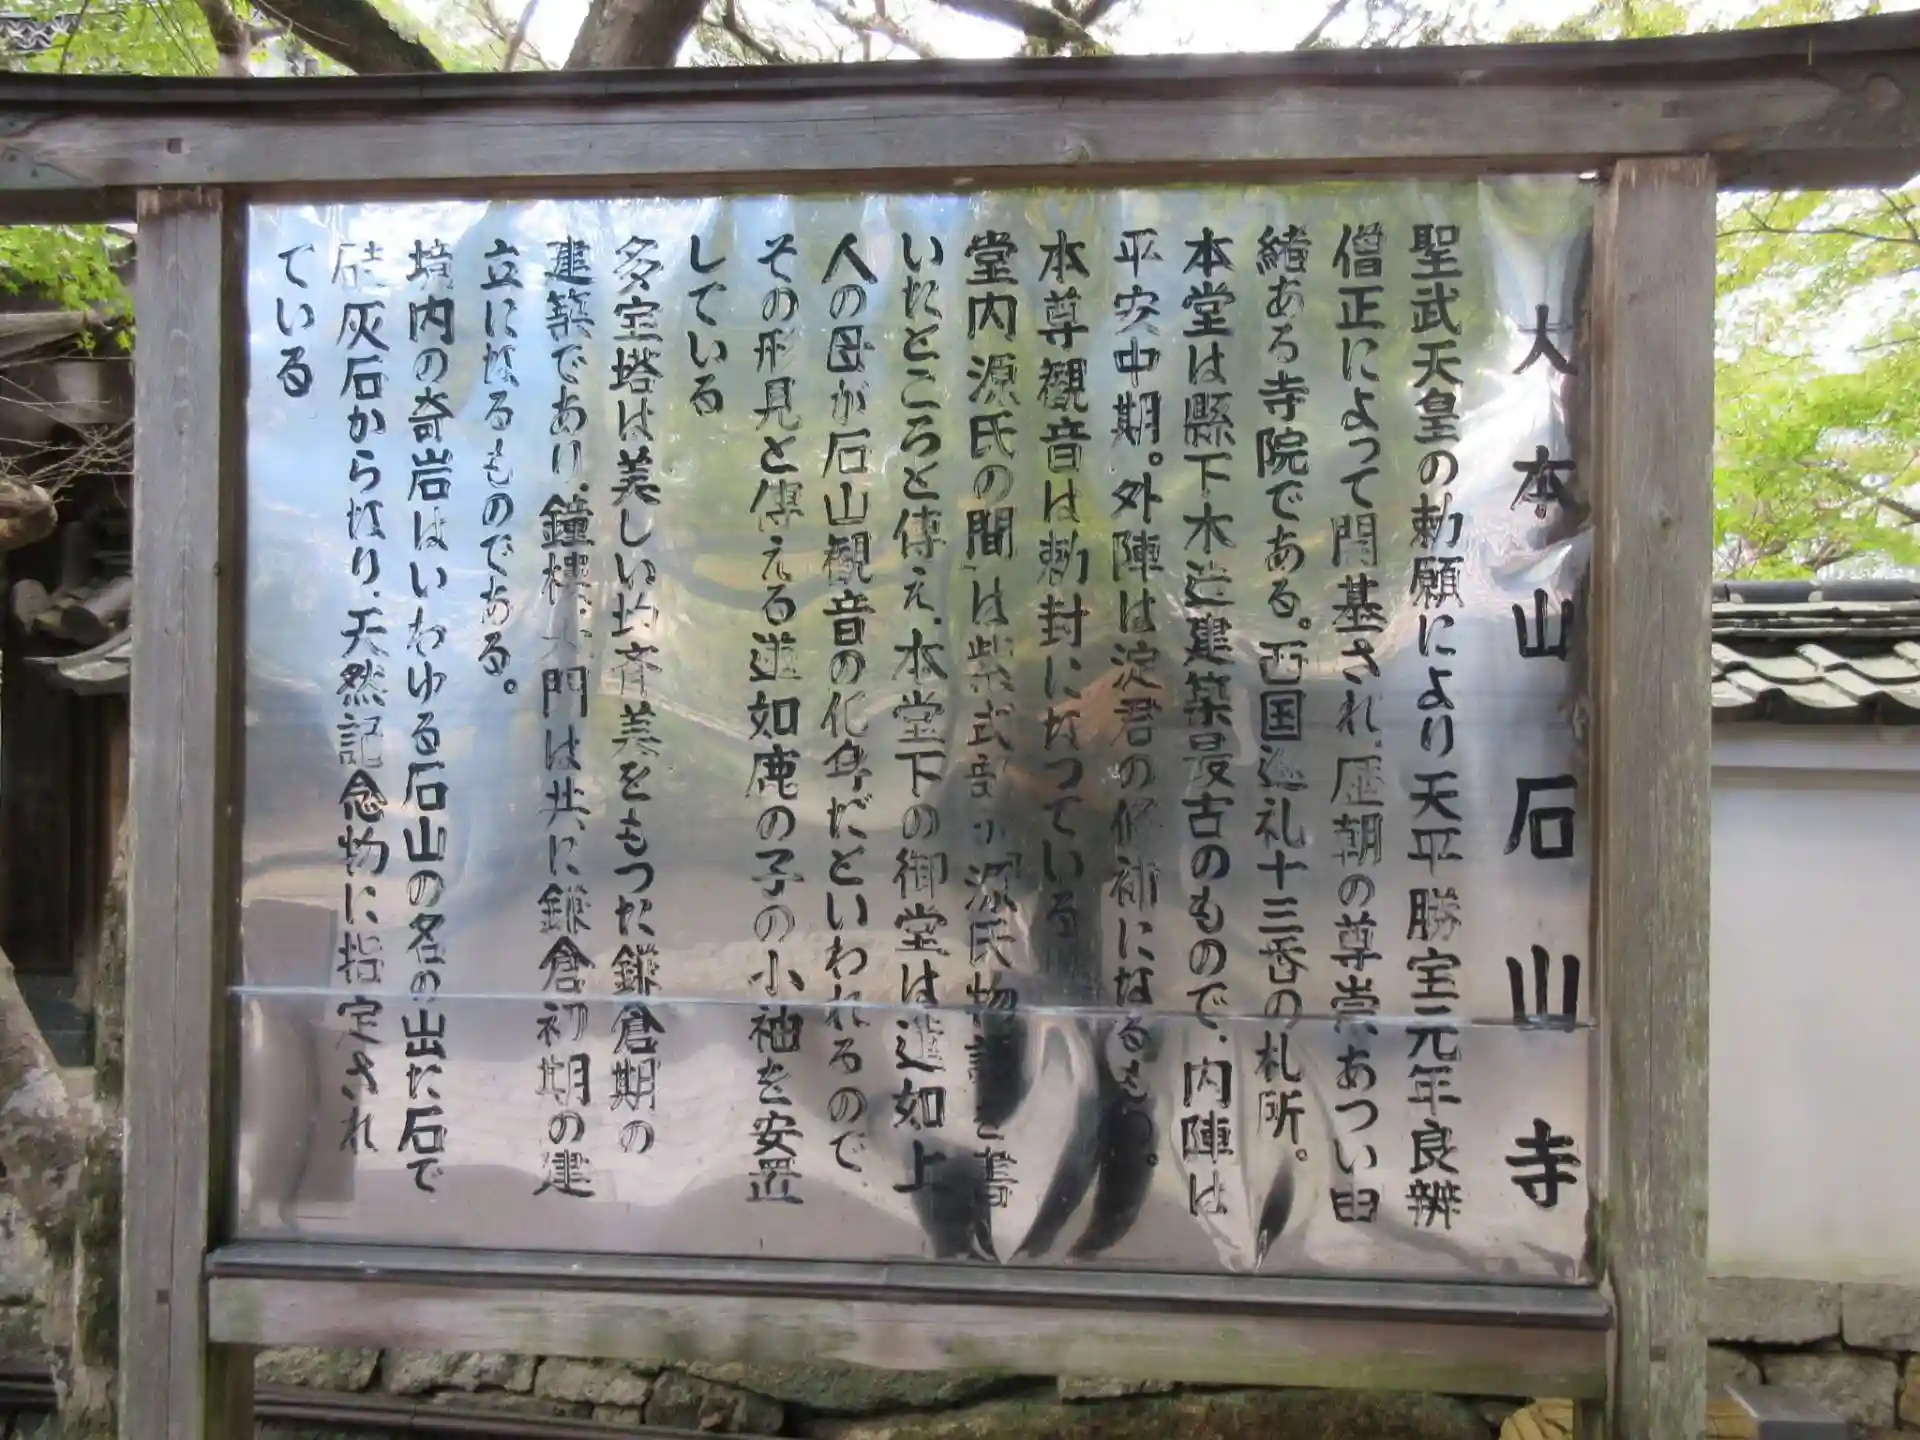 大本山石山寺
聖武天皇の勅願により天平勝宝元年良辨
僧正によって開基され、歴朝の尊崇、あつい由
緒ある寺院である。西国巡礼十三番の札所。
本堂は縣下木造建築最古のもので、内陣は
平安中期。外陣は淀君の修補になるもの。
本尊観音は勅封になつている
堂内源氏の間は紫式部が「源氏物語」を書
いたところと傳え、本堂下の御堂は蓮如上
人の母が石山観音の化身だといわれるので
その形見と傳える蓮如鹿の子の小袖を安置
している
多宝塔は美しい均斉美をもつた鎌倉期の
建築であり、鐘楼、大門は共に鎌倉初期の建
立になるものである。
境内の奇岩はいわゆる石山の名の出た石で
硅灰石からなり、天然記念物に指定され
ている